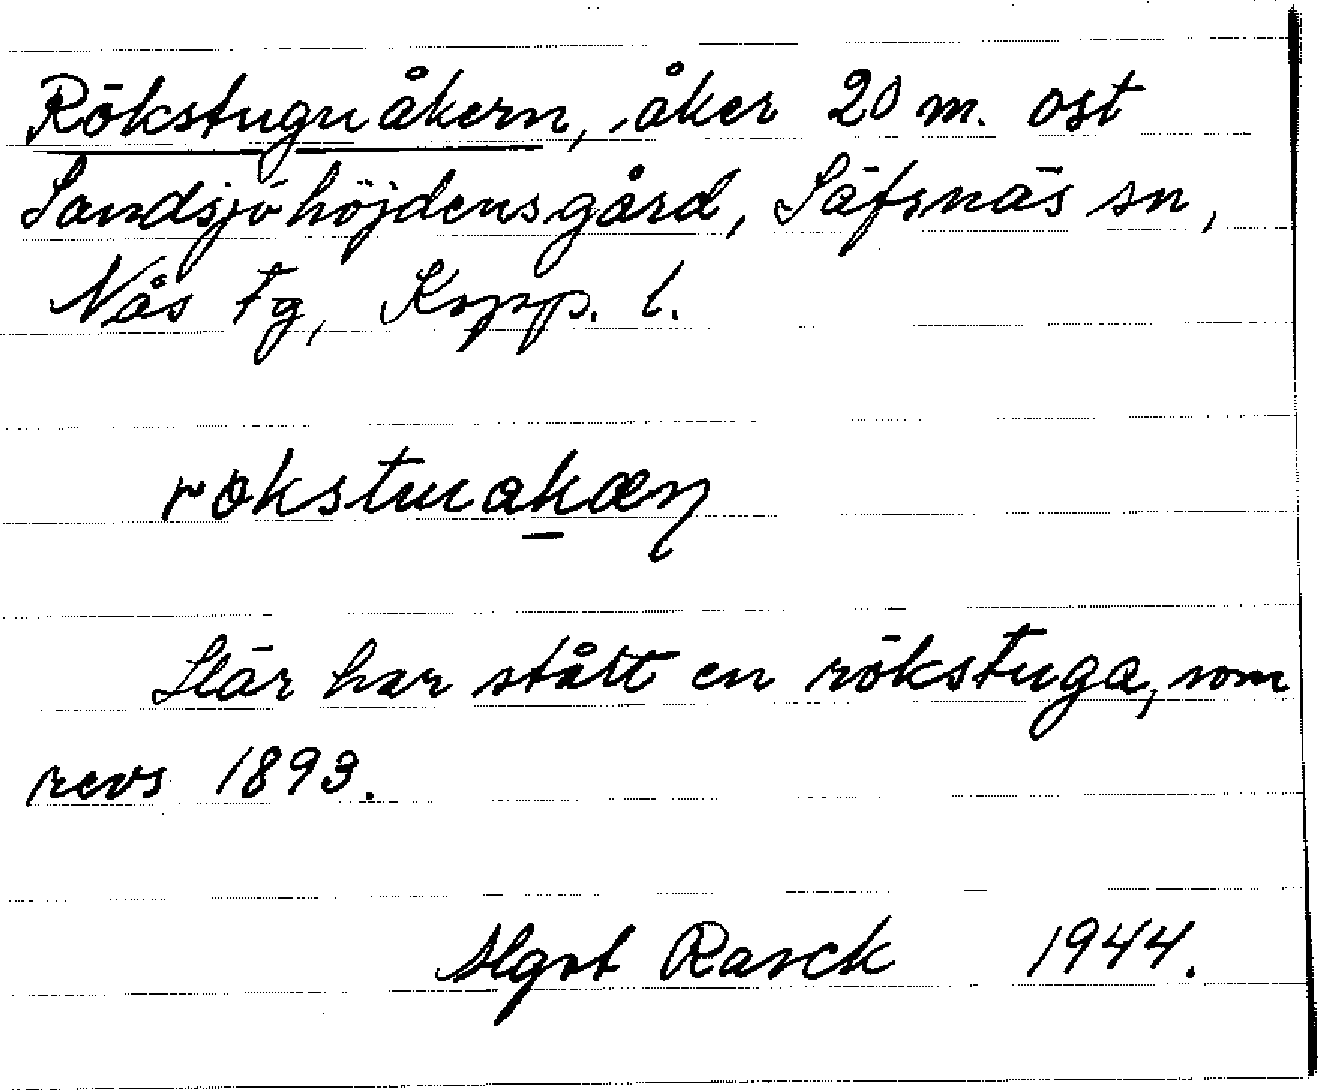 Rökstuguåkern, åker 20 m. ost
Sandsjöhöjdensgård, Säfsnäs sn,
Nås tg, Kopp. l.
rökstuuakæṇ
Här har stått en rökstuga, som
revs 1893.
Algot Rasck 1944.